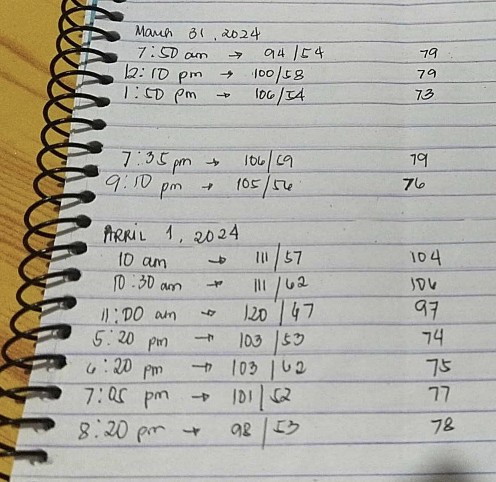 March 31, 2024
7:50 am → 94/54 79
12:10 pm → 100/58 79
1:50 pm → 106/54 73
7:35 pm → 106/59 79
9:10 pm → 105/56 76
APRIL 1, 2024
10 am → 111/57 104
10:30 am → 111/62 106
11:00 am → 120/47 97
5:20 pm → 103/53 74
6:20 pm → 103/62 75
7:05 pm → 101/52 77
8:20 pm → 98/53 78